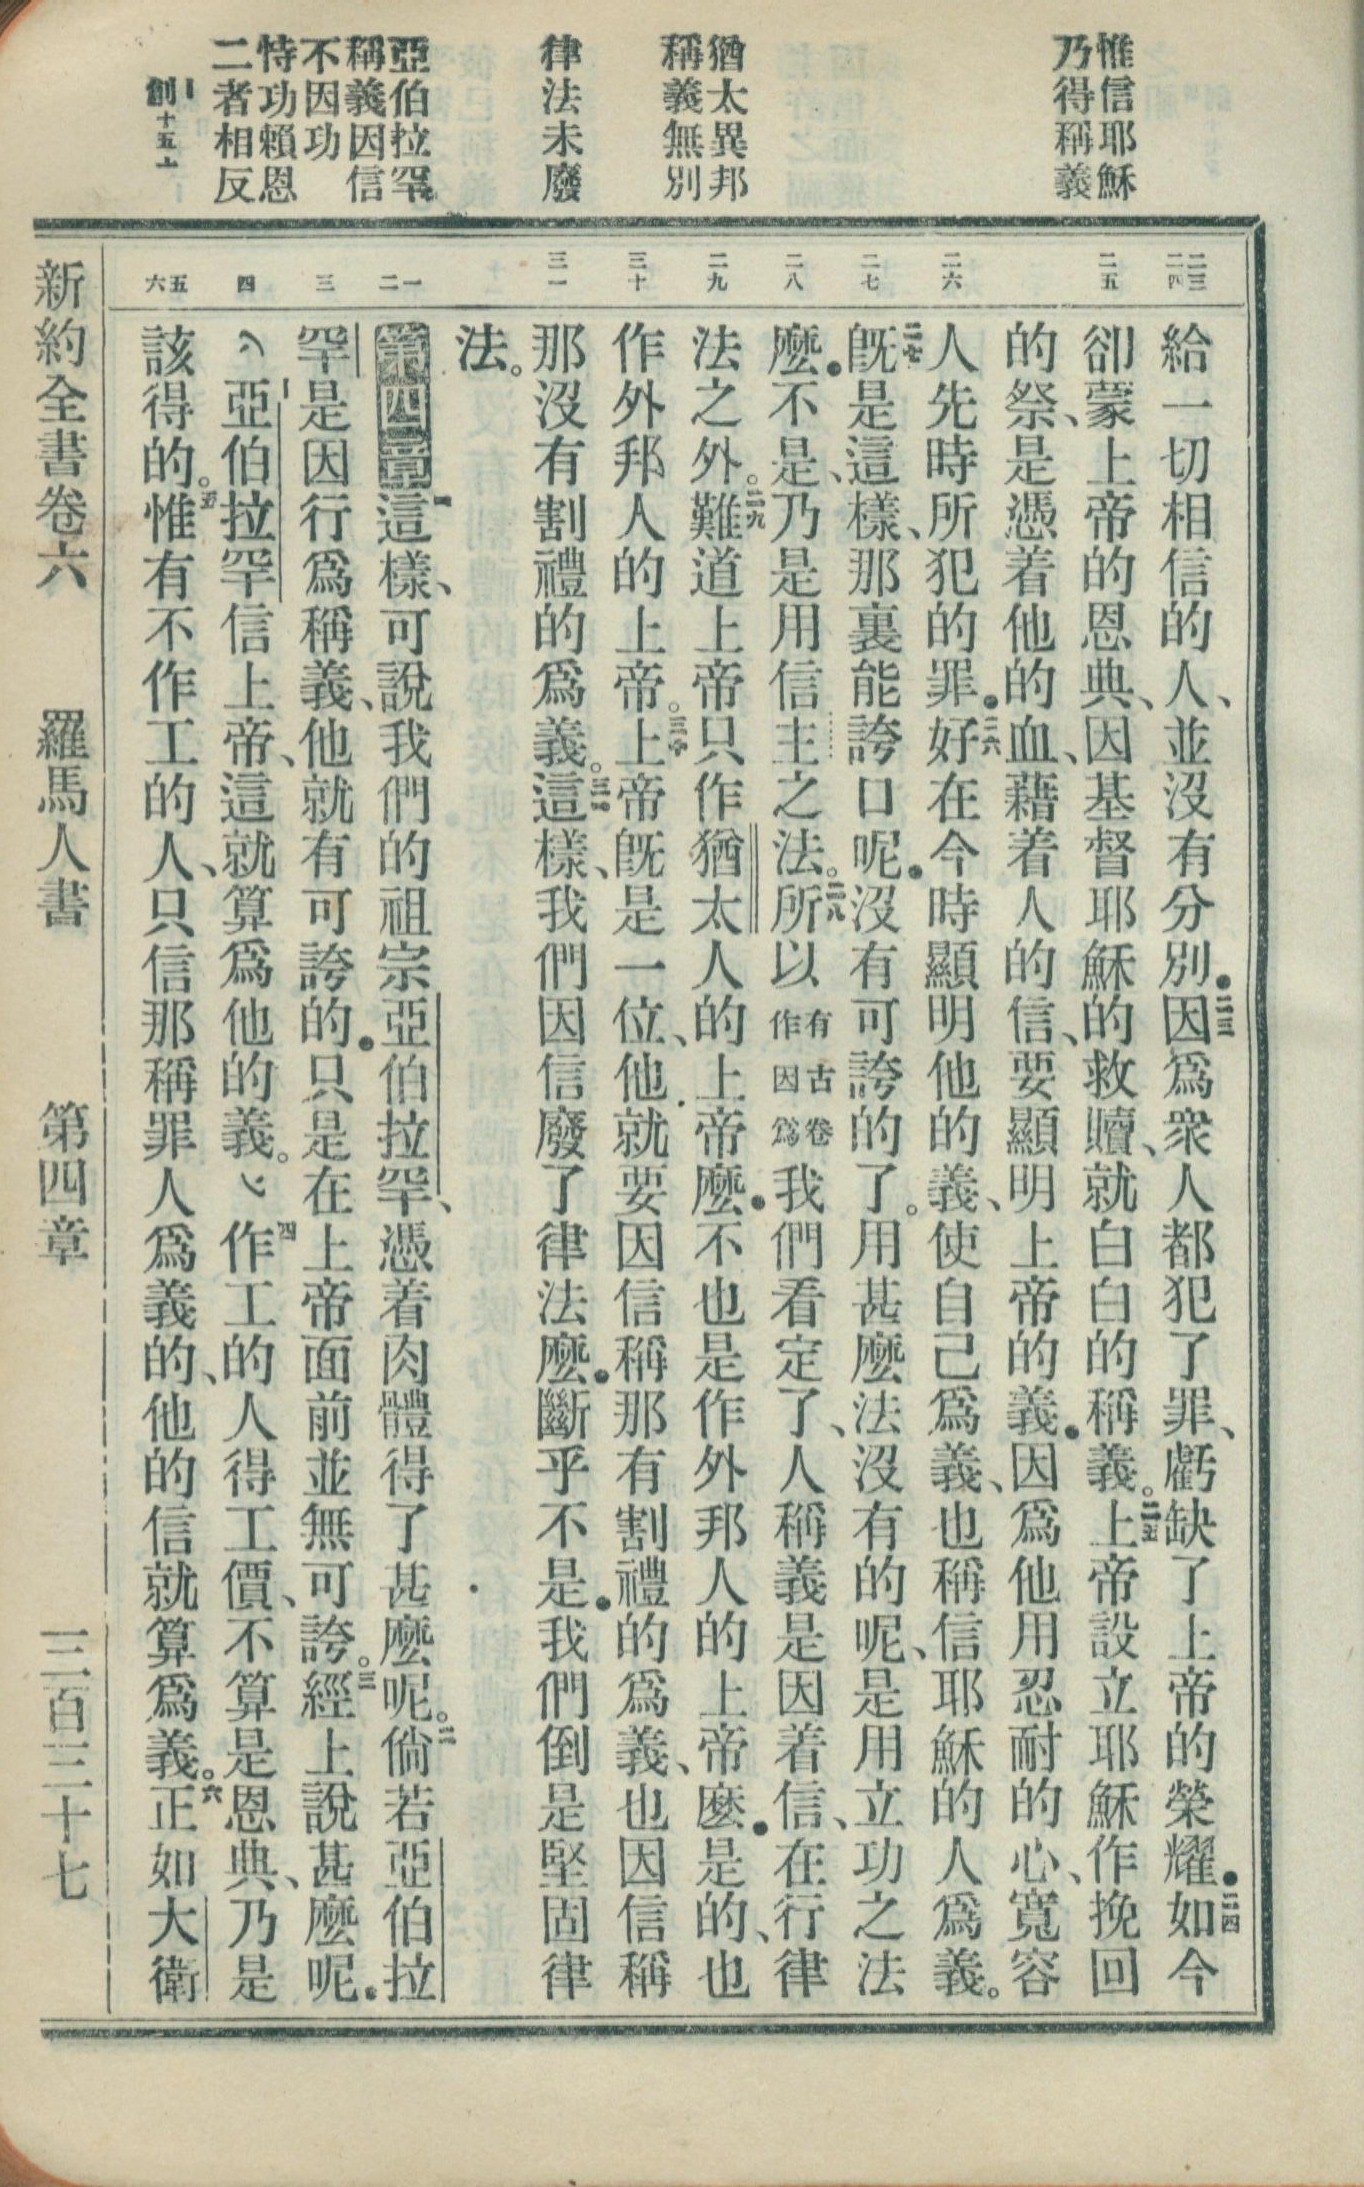 惟信耶穌
乃得稱義
猶太異邦
稱義無別
律法未廢
亞伯拉罕
稱義因信
不因功
恃功賴恩
二者相反
創十五
二三
二四
二五
二六
二七
二八
二九
三十
三一
一
二
三
四
五
六
給一切相信的人、並沒有分別．二三因爲衆人都犯了罪、虧缺了上帝的榮耀．二四如今
卻蒙上帝的恩典、因基督耶穌的救贖、就白白的稱義。二五上帝設立耶穌作挽回
的祭、是憑着他的血、藉着人的信、要顯明上帝的義．因爲他用忍耐的心、寬容
人先時所犯的罪．二六好在今時顯明他的義、使自己爲義、也稱信耶穌的人爲義。
二七既是這樣、那裏能誇口呢．沒有可誇的了。用甚麽法沒有的呢、是用立功之法
麽．不是、乃是用信主之法。二八所以有古卷作因爲我們看定了、人稱義是因着信、在行律
法之外。二九難道上帝只作猶太人的上帝麽．不也是作外邦人的上帝麽．是的、也
作外邦人的上帝。三十上帝既是一位、他就要因信稱那有割禮的爲義、也因信稱
那沒有割禮的爲義。三一這樣、我們因信廢了律法麽．斷乎不是．我們倒是堅固律
法。
第四章一這樣、可說我們的祖宗亞伯拉罕、憑着肉體得了甚麽呢。二倘若亞伯拉
罕是因行爲稱義、他就有可誇的．只是在上帝面前並無可誇。三經上說甚麽呢．
亞伯拉罕信上帝、這就算爲他的義。四作工的人得工價、不算是恩典、乃是
該得的。五惟有不作工的人、只信那稱罪人爲義的、他的信就算爲義。六正如大衛
新約全書卷六　羅馬人書　第四章　三百三十七